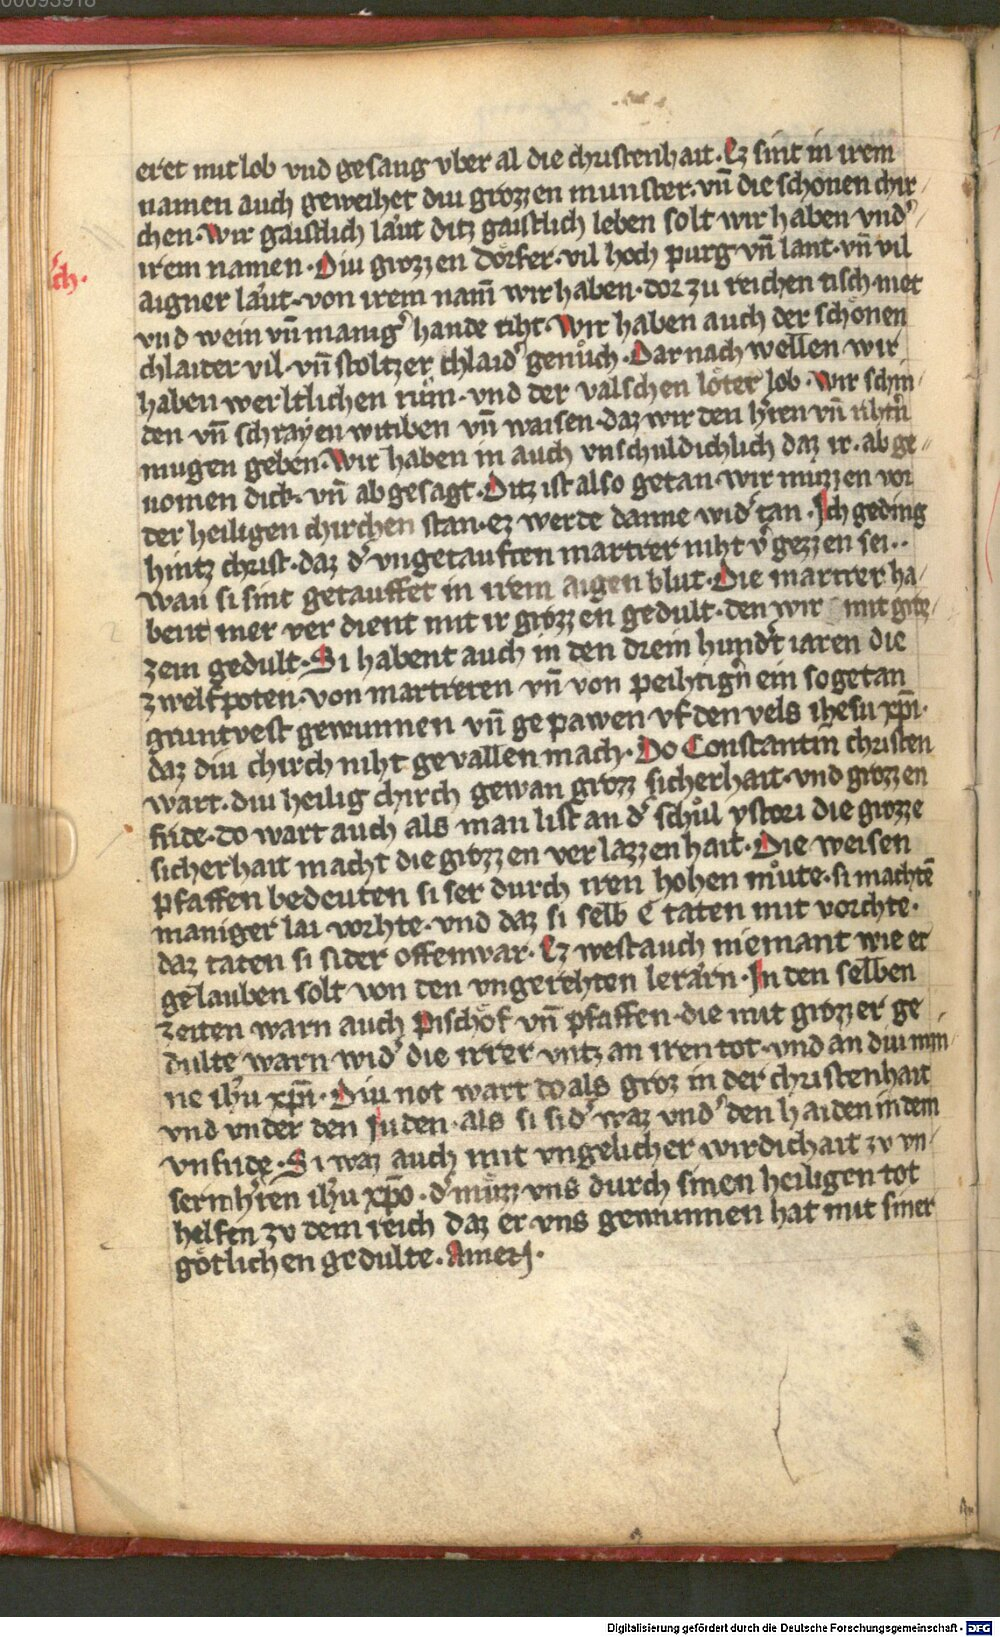 00093918
eret mit lob vnd gesang vber al die christenhait · Ez sint in irem
namen auch geweihet diu grozzen munster · vn̄ die schonen chir
chen · Wir gaistlich la̍ut ditz gaistlich leben solt wir haben vnd̾
irem namen · Diu grozzen dörfer · vil hoch purg vn̄ lant · vn̄ vil
ch ·
aigner la̍ut · von irem nam̄ wir haben · dor zu reichen tisch · met
vnd wein vn̄ manig̾ hande tiht · Wir haben auch der schönen
chlaiter vil · vn̄ stoltzer chlaid̾ genůch · Dar nach wellen wir
haben werltlichen rům · vnd der valschen löter lob · Wir schin
den vn̄ schrayen witiben vn̄ waisen · daz wir den h̾ren vn̄ riht̾n
mugen geben · Wir haben in auch vnschuldichlich daz ir · ab ge
nomen dick · vn̄ ab gesagt · Ditz ist also getan · wir muzzen vor
der heiligen chirchen stan · ez werde danne wid̾ tan · Ich geding
hintz christ · daz d̾ vngetauften martrer niht v̾gezzen sei ··
wan si sint getauffet in irem aigen blut · Die martrer ha
bent mer ver dient mit ir grozzen gedult · den wir mit gite
zem gedult · Si habent auch in den drein hund̾t iaren die
zwelfpoten · von martreren vn̄ von peihtig̾n ein sogetan
gruntvest gewunnen vn̄ ge pawen vf den vels ihesu xp̄i ·
daz diu chirch niht gevallen mach · Do Constantin̄ christen
wart · diu heilig chirch gewan grozz sicherhait · vnd grozzen
fride · do wart auch als man list an d̾ schůl ystori die grozze
sicherhait macht die grozzen verlazzenhait · Die weisen
pfaffen bedeuten si ser durch iren hohen můte · si machtē
maniger lai vorhte · vnd daz si selb e taten mit vorchte ·
daz taten si sider offenwar · Ez west auch niemant wie er
gelauben solt von den vngerehten lera̍rn · In den selben
zeiten warn auch Pischöf vn̄ pfaffen · die mit grozzer ge
dulte warn wid̾ die irrer vntz an iren tot · vnd an diu min
ne ih̾u xp̄i · Diu not wart do als groz in der christenhait
vnd vnder den Juden · als si sid̾ waz vnd̾ den haiden in dem
vnfride · Si waz auch mit vngelicher wirdichait zv vn
serm h̾ren ih̾u xp̄o · d̾ můzz vns durch sinen heiligen tot
helfen zv dem reich daz er vns gewunnen hat mit siner
götlichen gedulte · Amen ·
Digitalisierung gefördert durch die Deutsche Forschungsgemeinschaft - DFG